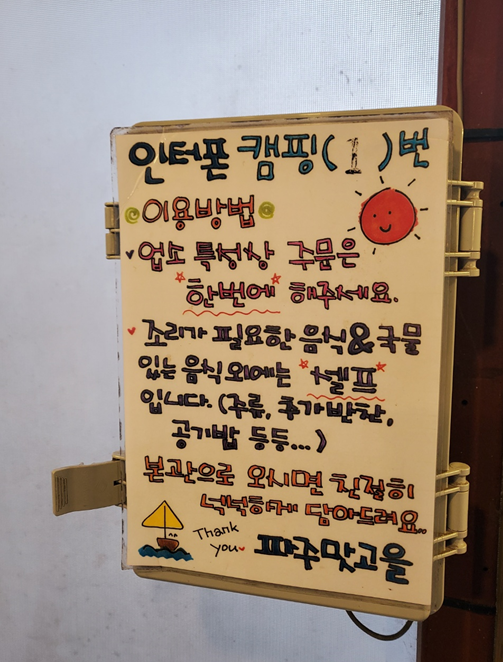 인터폰 캠핑(1)번
이용방법
업소 특성상 주문은
"한번에" 해주세요.
조리가 필요한 음식&국물
있는 음식 외에는 "셀프"
입니다. (주류, 추가반찬,
공기밥 등등...)
본관으로 오시면 친절히
넉넉하게 담아드려요..
Thank
you
파주맛고을